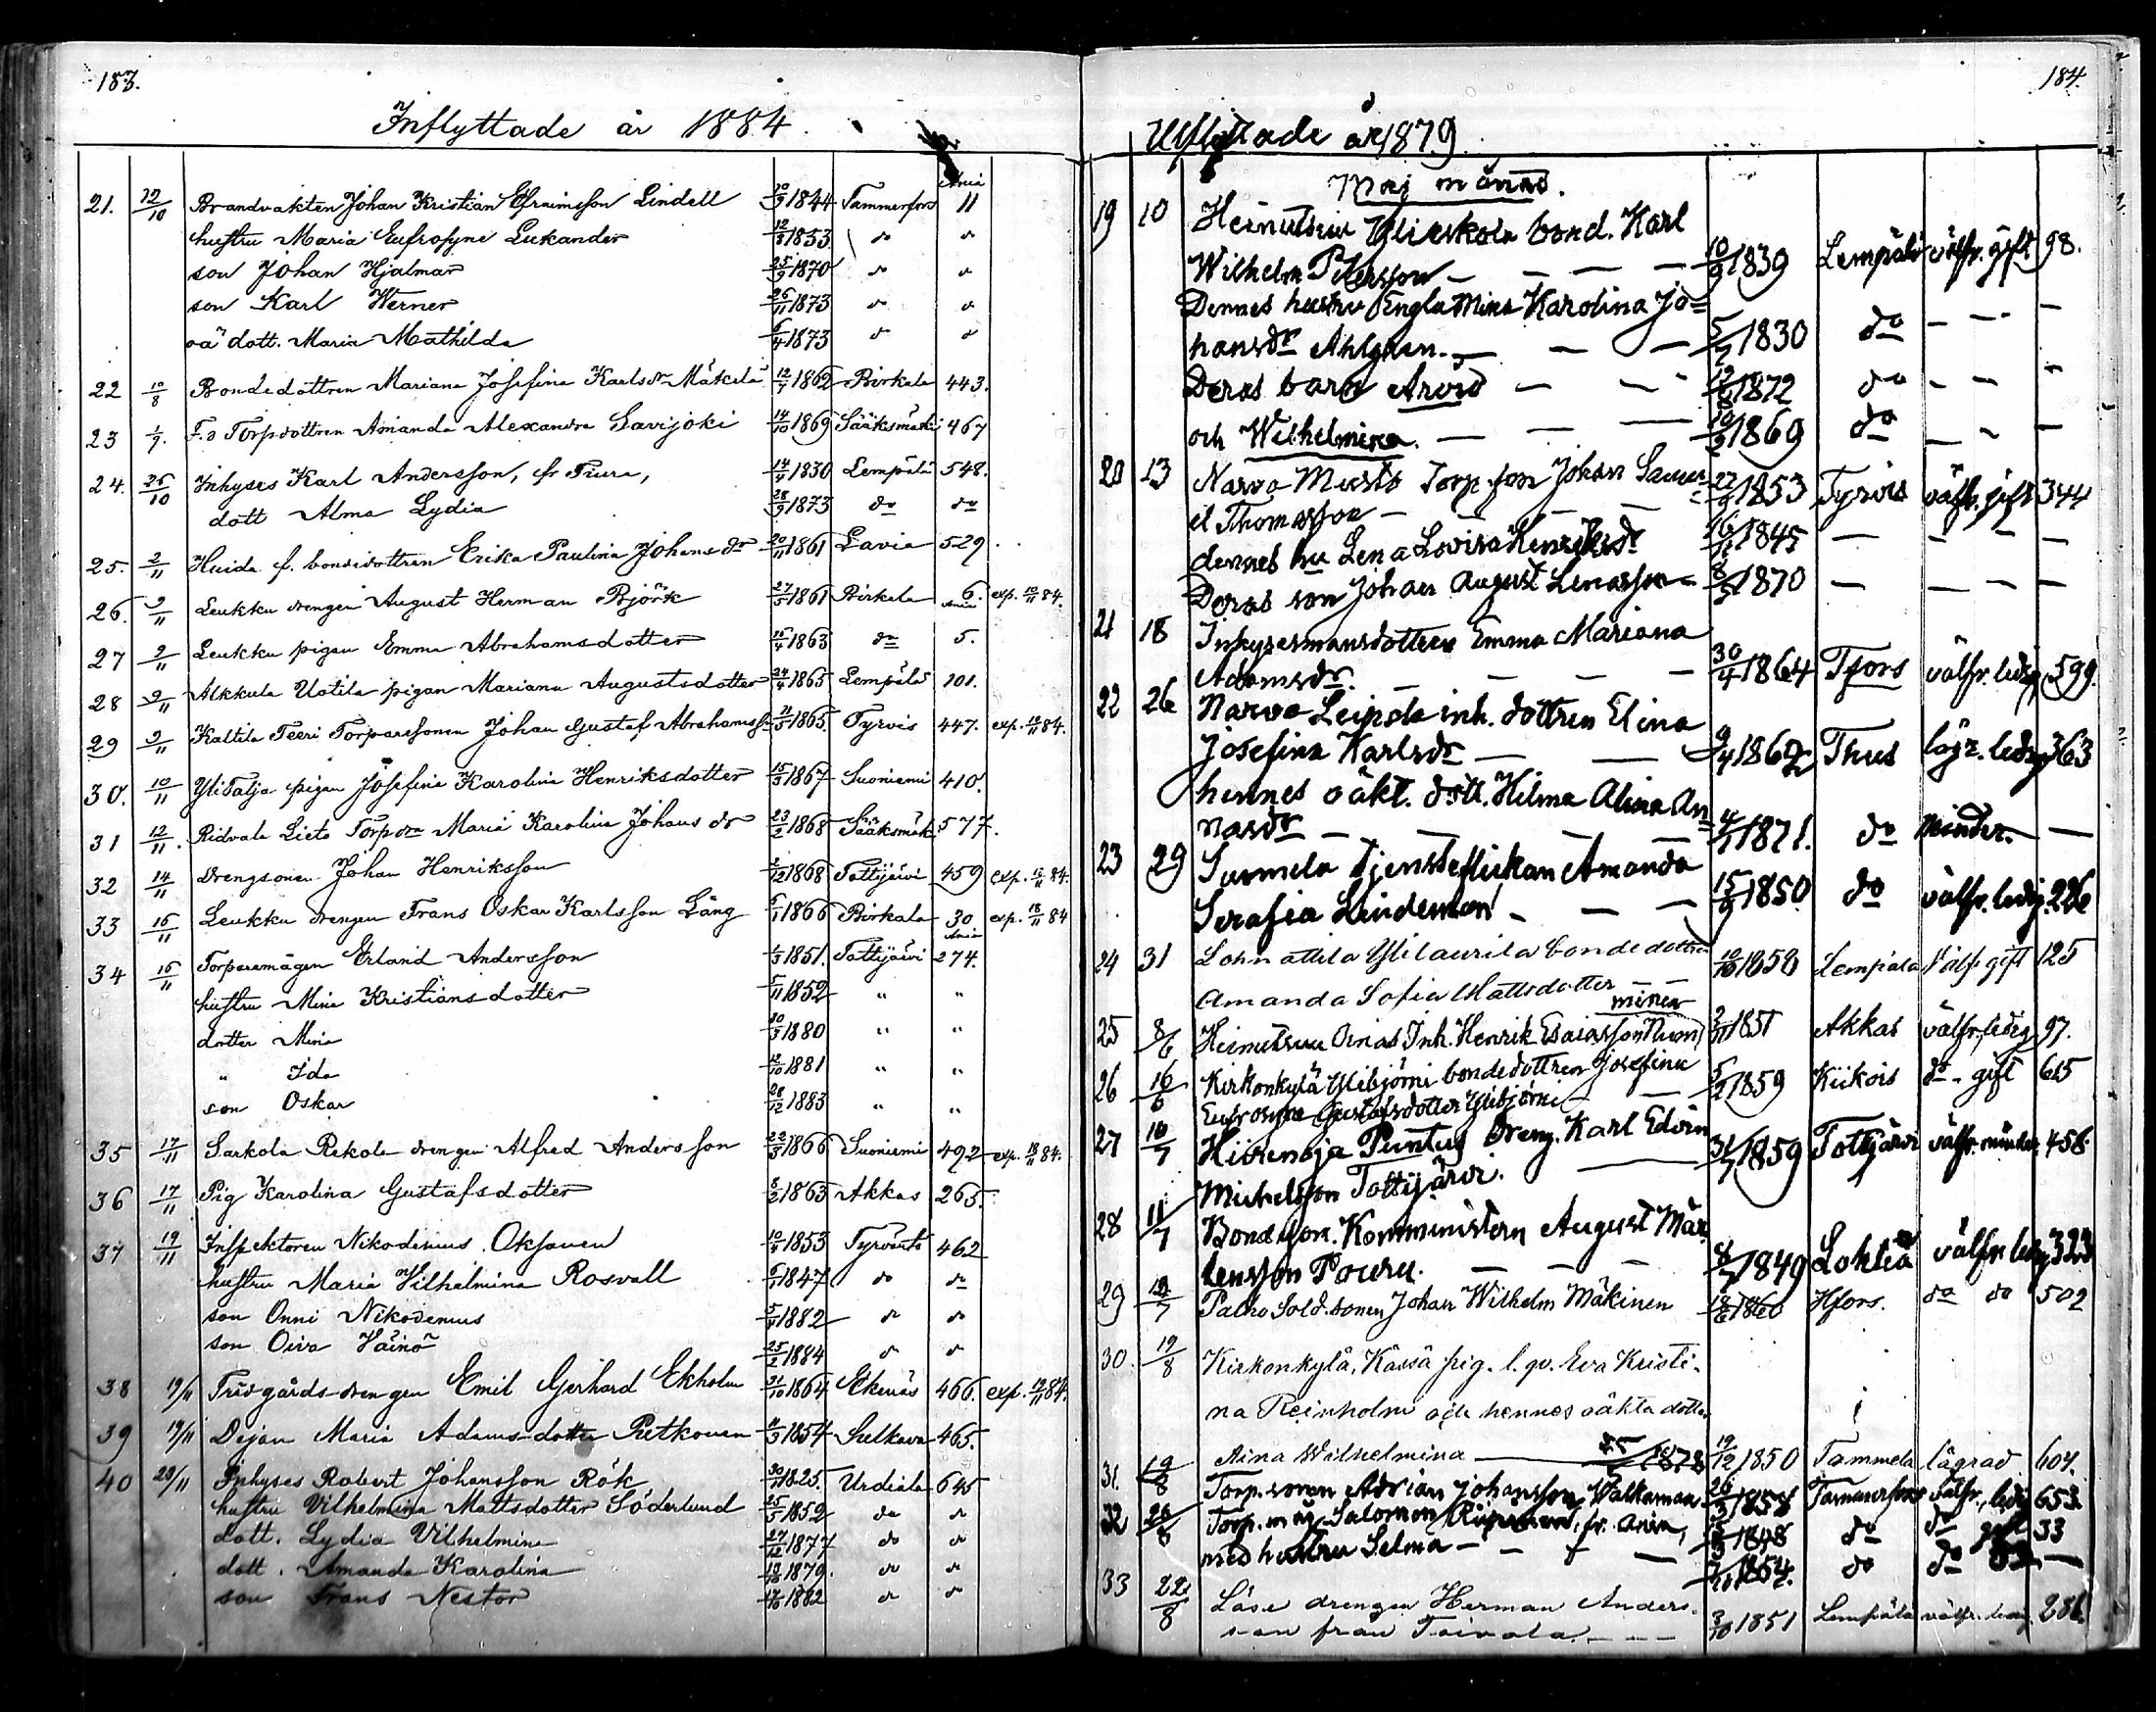 183.
Inflyttade år 1884.
Ania
21. 12/10 Brandvakten Johan Kristian Efraimsson Lindell 1844 Tammerfors 11
hustru Maria Eufrosyne Lukander 12/8 1853 do do
son Johan Hjalmar 25/9 1870 do do
son Karl Werner 26/11 1873 do do
oä dott. Maria Mathilda 6/4 1873 do do
22 10/8 Bondedottren Mariana Josefina Karlsdr Mäkelä 12/7 1862 Birkala 443.
23 1/9. F.d Torpdottren Amanda Alexandra Savijoki 14/10 1869 Sääksmäki 467
24. 26/10 Inhyses Karl Andersson, fr 14/4 1830 Lempälä 548.
dott Alma Lydia 28/9 1873 do do
25. 2/11 Huida f. bondedottren Erika Paulina Johansdr 20/11 1861 Lavia 529
26. 9/11 Leukku drengen August Herman Björk 27/5 1861 Birkala 6. Ania exp. 10/11 84.
27 9/11 Leukku pigan Emma Abrahamsdotter 15/4 1863 do 5.
28 9/11 Alkkula Uotila pigan Mariana Augustsdotter 24/4 1865 Lempälä 101.
29 9/11 Kaltila Teeri Torparesonen Johan Gustaf Abrahamsson 1865. Tyrvis 447. exp. 10/11 84.
30. 10/11 Ylitalja pigan Josefina Karolina Henriksdotter 15/3 1867 Suoniemi 410.
31 12/11. Ridvala Lieto Torpdr Maria Karolina Johansdr 23/2 1868 Sääksmäki 577.
32 14/11 Drengsonen Johan Henriksson 1868 Tottijärvi 459 exp. 84.
33 16/11 Leukku drengen Frans Oskar Karlsson Lång 1866 Birkala 30 Ania exp. 18/11 84
34 16/11 Torparemågen Erland Andersson 1851. Tottijärvi 274.
hustru Mina Kristiansdotter 5/11 1852 " "
dotter Mina 1880 " "
" Ida 12/10 1881 " "
son Oskar 28/12 1883 " "
35 17/11 Sarkola Pekola drengen Alfred Andersson 22/3 1866 Suoniemi 492 exp. 18/11 84.
36 17/11 Pig Karolina Gustafsdotter 8/2 1863 Akkas 265.
37 19/11 Inspektoren Nikodemus Oksanen 10/4 1853 Tyrväntö 462
hustru Maria Vilhelmina Rosvall 1847 do do
son Onni Nikodemus 1882 do do
son Oiva Väinö 25/2 1884 do do
38 19/11 Trädgårdsdrengen Emil Gerhard Ekholm 31/10 1864 Ekenäs 466. exp. 19/11 84.
39 19/11 Dejan Maria Adamsdotter Putkonen 1854 Sulkava 465.
40 28/11 Inhyses Robert Johansson Rök 1825. Urdiala 645
hustru Vilhelmina Mattsdotter Söderlund 25/5 1852 do do
dott. Lydia Vilhelmina 27/12 1877 do do
dott. Amanda Karolina 1879. do do
son Frans Nestor 1882 do do
184.
Utflyttade år 1879.
Maj månad.
19 10 Heinutsuu Ylierkola bond. Karl
Wilhelm Petersson — 10/9 1839 Lempälä välfr. gift 98.
Dennes hustru Engla Mina Karolina Jo=
hansdr Ahlgren. — 5/7 1830 do — — —
Deras barn Arvid — 1872 do — — —
och Wilhelmina. — 1869 do — — —
20 13 Narva Musto Torp.son Johan Samu= 1853 Tyrvis välfr. gift 344
el Thomasson —
dennes hu Lena Lovisa Henriksdr 1845 — — — —
Deras son Johan August Lenasson 1870 — — — —
21 18 Inhysesmansdottren Emma Mariana
Adamsdr. — 30/4 1864 Tfors välfr. ledig 599.
22 26 Narva Leipola inh. dottren Elina
Josefina Karlsdr — 1862 Thus lägr. ledig 363
hennes oäkt. dott. Hilma Alina An=
nasdr — 1871. do minder. —
23 29 Surmela Tjensteflickan Amanda
Serafia Lindeman — 15/9 1850. do välfr. ledig. 226
24 31 Lohnattila Ylilaurila bondedottren 1858 Lempälä välfr. gift 125
Amanda Sofia Mattsdotter —
minen
25 8/6 Heinutsuu Inh. Henrik Esaiasson Num 1851 Akkas välfr. ledig 97.
26 16/6 Kirkonkylä Ylibjörni bondedottren Josefina 5/2 1859 Kiikois do - gift 615
Eufrosyna Gustafsdotter Ylibjörni —
27 10/7 Hiirenoja Puntus Dreng. Karl Edvin 31/7 1859 Tottijärvi välfr. 458
Michelsson Tottijärvi. —
28 11/7 Bondeson. Kommunistern August Mår=
tensson Pouru. — 1849 Lohtea välfr. ledig 323
29 Palho Sold.sonen Johan Wilhelm Mäkinen 1860 Hfors. do do 502
30. 19/8 Kirkonkylä, Kässä pig. l. qv. Eva Kristi-
na Reinholm och hennes oäkta dotter
Aina Wilhelmina — 1878 19/12 1850 Tammela lägrad 604.
31. 19/8 Torp.sonen Adrian Johansson Walkaman 26/3 1858 Tammerfors välfr., ledig 653
32 Torp. måg. Salomon fr. Ania, do do gift 33
med hustru Selma — 1854. do do —
33 22/8 drengen Herman Anders-
son från Toivola. — 3/10 1851 Lempälä välfr. ledig 286.